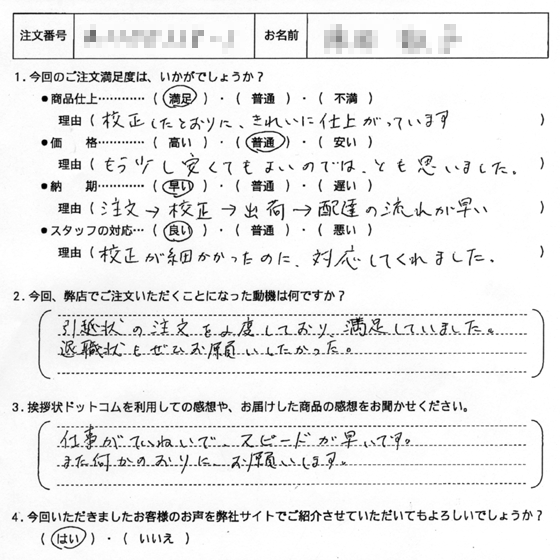 注文番号
お名前
1.今回のご注文満足度は、いかがでしょうか?
●商品仕上…………( 満足 )・( 普通 )・( 不満 )
理由(校正したとおりに、きれいに仕上がっています)
●価　格…………( 高い )・( 普通 )・( 安い )
理由(もう少し安くてもよいのでは、とも思いました。)
●納　期…………( 早い )・( 普通 )・( 遅い )
理由(注文→校正→出荷→配達の流れが早い)
●スタッフの対応…( 良い )・( 普通 )・( 悪い )
理由(校正が細かかったのに、対応してくれました。)
2.今回、弊店でご注文いただくことになった動機は何ですか?
引越状の注文を度しており、満足していました。
退職状もぜひお願いしたかった。
3.挨拶状ドットコムを利用しての感想や、お届けした商品の感想をお聞かせください。
仕事がていねいで、スピードが早いです。
また何かのおりに、お願いします。
4.今回いただきましたお客様のお声を弊社サイトでご紹介させていただいてもよろしいでしょうか?
( はい )・( いいえ )